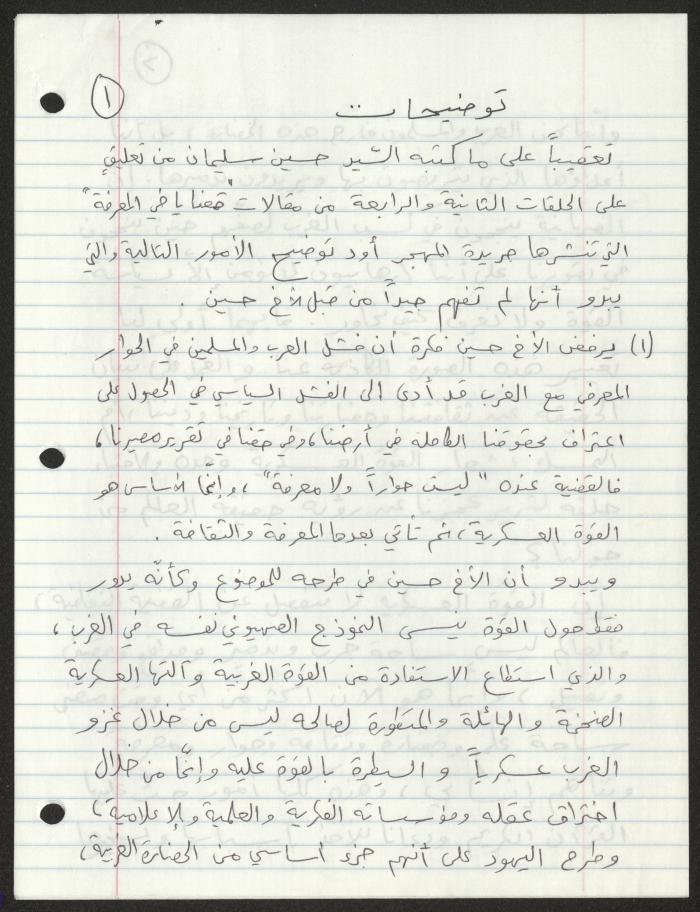 ١
توضيحات
تعقيباً على ما كتبه السّيد حسين سليمان من تعليقٍ
على الحلقات الثانية والرابعة من مقالات "قضايا في المعرفة"
التي تنشرها جريدة المهجر أود توضيح الأمور التالية والتي
يبدو أنها لم تفهم جيداً من قبل الأخ حسين .
(١) يرفض الأخ حسين فكرة أن فشل العرب والمسلمين في الحوار
المعرفي مع الغرب قد أدى الى الفشل السياسي في الحصول على
اعتراف بحقوقنا الكاملة في أرضنا، وفي حقنا في تقرير مصيرنا،
فالقضية عنده "ليست حواراً ولا معرفة"، وإنّما الأساس هو
القوّة العسكرية، ثم تأتي بعدها المعرفة والثقافة .
ويبدو أن الأخ حسين في طرحه للموضوع وكأنّه يدور
فقط حول القوة ينسى النموذج الصهيوني نفسه في الغرب،
والذي استطاع الاستفادة من القوّة الغربية وآلتها العسكرية
الضخمة والهائلة والمتطورة لصالحه ليس من خلال غزو
الغرب عسكرياً والسيطرة بالقوة عليه وإنّما من خلال
اختراق عقله ومؤسساته الفكرية والعلمية والإعلامية،
وطرح اليهود على أنهم جزء أساسي من الحضارة الغربية،